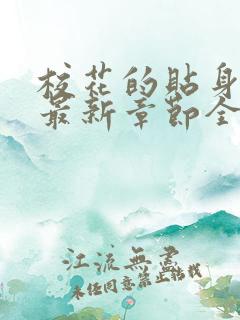 校花的贴身
最新章节全
江流無盡
未经同意禁止转载